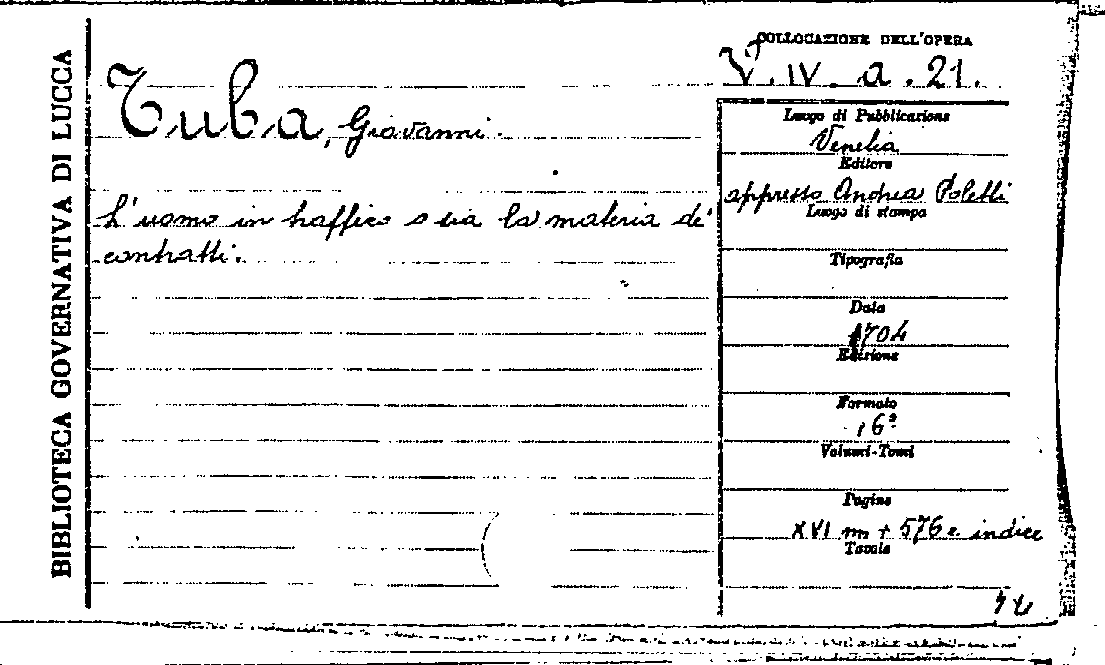 BIBLIOTECA GOVERNATIVA DI LUCCA
COLLOCAZIONE DELL'OPERA
V. IV. a. 21.
Tuba, Giovanni.
L'uomo in traffico o sia la materia de'
contratti.
Luogo di Pubblicazione
Venetia
Editore
appresso Andrea Poletti
Luogo di stampa
Tipografia
Data
1704
Edizione
Formato
16°
Volumi-Tomi
Pagine
XVI m + 576 e indice
Tavole